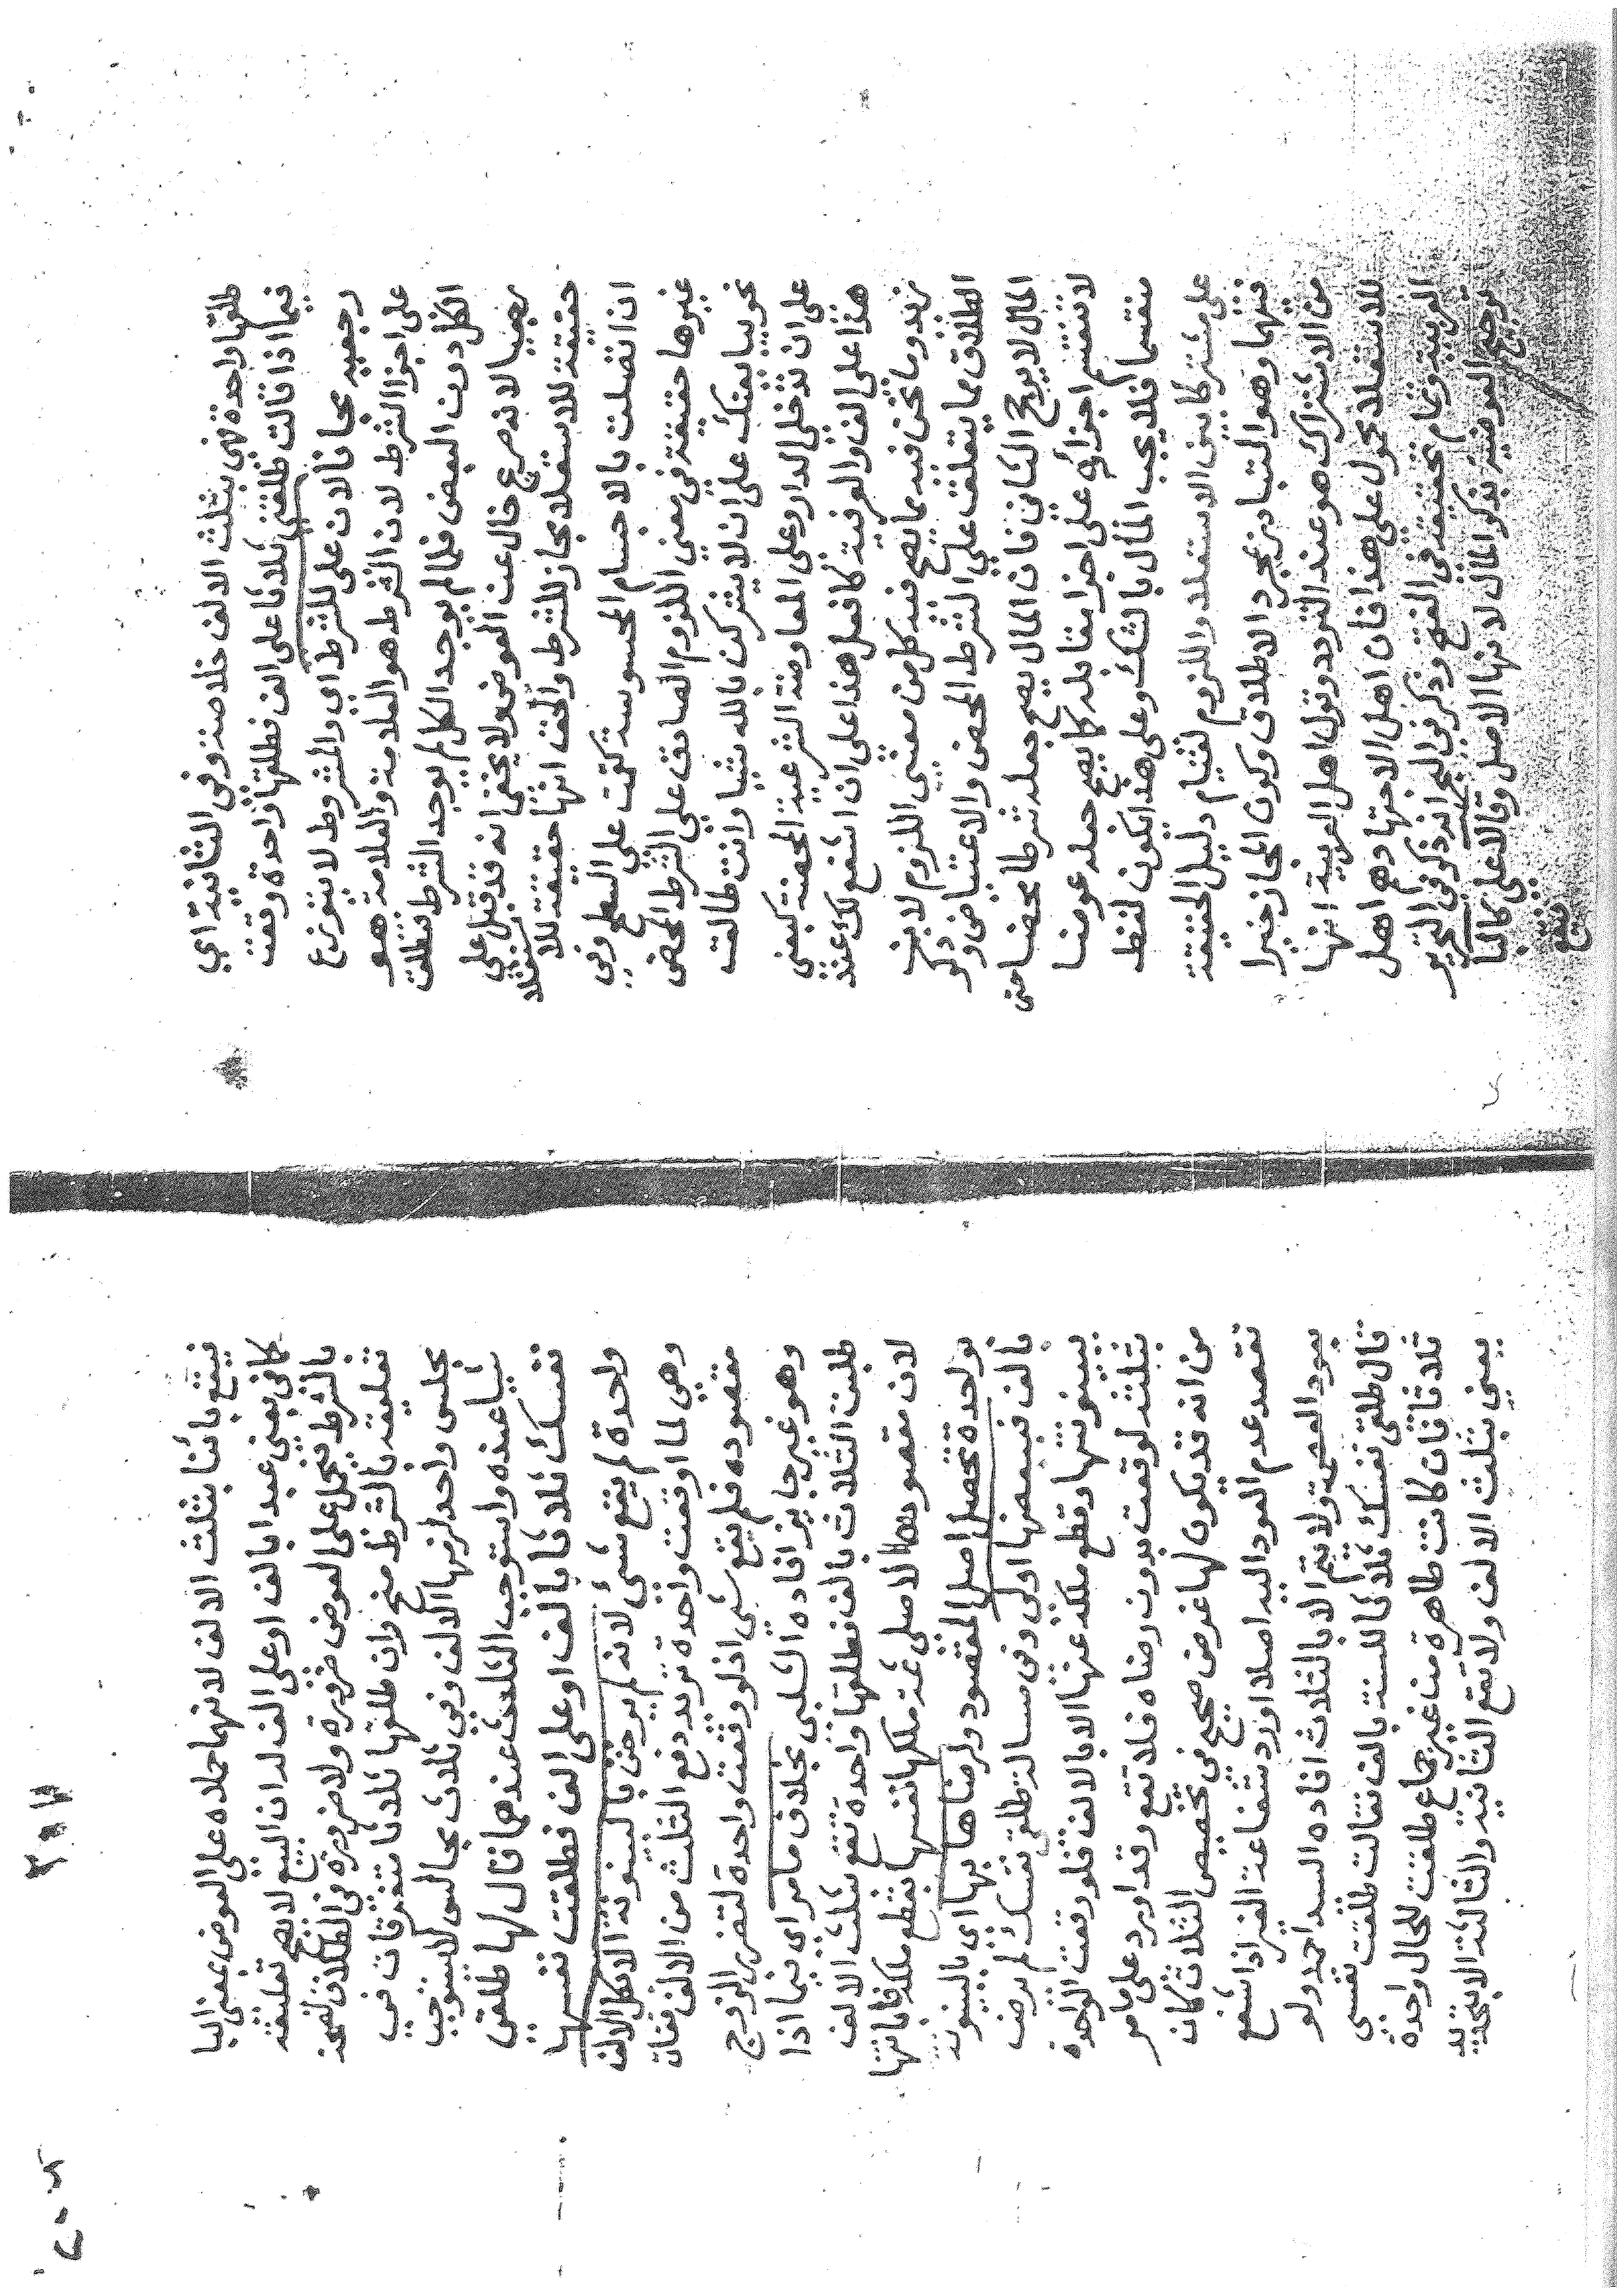 طلقها واحدة فهي بثلث الالف خلاصة وفى الثانية اي
فيما اذا قالت طلقنى ثلاثا على الف فطلقها واحدة وقعت
رجعية مجانا لان على للشرط اي والمشروط لا يتوزع
على اجزا الشرط لان الشرط هو العلامة والعلامة هو
الكل دون البعض فلما لم يوجد الكل لم يوجد الشرط فتطلق
رجعيا لانه صريح خال عن العوض ولا يخفى انه قد قيل على
حقيقة للاستعلاء مجاز للشرط والحق انها حقيقة للا
ستعلاء
ان اتصلت بالاجسام المحسوسة كقمت على السطح وفى
غيرها حقيقة فى معنى اللزوم الصادق على الشرط المحض
نحو يبايعنك على ان لا يشركن بالله شيا وانت طالق
على ان تدخلى الدار وعلى المعاوضة الشرعية المحضة كبعنى
هذا على الف والعرفية كافعل هذا على ان اشفع لك عند
زيد وما نحن فيه مما يصح فيه كل من معنيى اللزوم لان
الطلاق مما يتعلق على الشرط المحض والاعتياض وذكر
المال لا يرجح الثانى فان المال يصح جعله شرطا محضا حتى
لا تنقسم اجزاؤه على اجزا مقابله كما يصح جعله عوضا
منقسما فلا يجب المال بالشك وعلى هذا يكون لفظ
على مشتركا بين الاستعلاء واللزوم لقيام دليل الحقيقة
فيهما وهو التبادر بمجرد الاطلاق وكون المجاز خيرا
من الاشتراك هو عند التردد وقول اهل العربية انها
للاستعلاء محمول على هذا فان اهل الاجتهاد هم اهل
العربية وتمام تحقيقه فى الفتح وذكر فى البحر انه ذكر فى التحرير
ترجيح العوضية بذكر المال لانها الاصل وقالا على كالبا
فيقع
فيقع بائنا بثلث الالف لانهما حملاه على العوض بمعنى البا
كما فى بعنى عبدا بالف او على الف لان البيع لا يصح تعليقه
بالشرط فيحمل على العوض ضرورة ولا ضرورة فى الطلاق لصحة
تعليقه بالشرط منح وان طلقها ثلاثا متفرقات فى
مجلس واحد لزمها الالف وفى ثلاث مجالس لا يستوجب
شيا عنده واستوجب الثلث عندهما قال لها طلقى
نفسك ثلاثا بالف او على الف فطلقت نفسها
واحدة لم يقع شئ لانه لم يرض بالبينونة الا بكل الالف
وهى لما اوقعت واحدة تريد دفع الثلث من الالف ففات
مقصوده فلم يقع شى اذ لو وقعت واحدة لتضرر الزوج
وهو غير جايز افاده الشلبى بخلاف ما مر اى فيما اذا
طلبت الثلاث بالف فطلقها واحدة تقع بثلث الالف
لان مقصودها الاصلى ثمة ملكها نفسها بقطع ملكه فابانتها
بواحدة تحصل اصل المقصود ولرضاها بها اى بالبينونة
بالف فببعضها اولى وفى مسالة طلقى نفسك لم يرض
ببينونتها وقطع ملكه عنها الا بالالف فلو وقعت الواحدة
بثلثه لوقعت بدون رضاه فلا تقع وقد اورد على ما مر
من انه قد يكون لها غرض صحيح فى تخصيص الثلاث كان
تقصد عدم العود اليه اصلا ورد شفاعة الغير اذا شفع
بعود العصمة ولا يتم الا بالثلاث افاده السيد احمد ولو
قال طلقى نفسك ثلاثا للسنة بالف فقالت طلقت نفسى
ثلاثا فان كانت طاهرة من غير جماع طلقت للحال واحدة
يعنى بثلث الالف ولا تقع الثانية والثالثة الا بتجديد